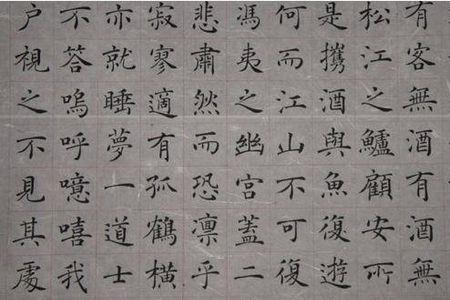 有客無酒有酒無
松江之鱸顧安所
是攜酒與魚復遊
何而江山不可復
馮夷之幽宮蓋二
悲肅然而恐凜乎
寂寥適有孤鶴橫
亦就睡夢一道士
不答嗚呼噫嘻我
戶視之不見其處